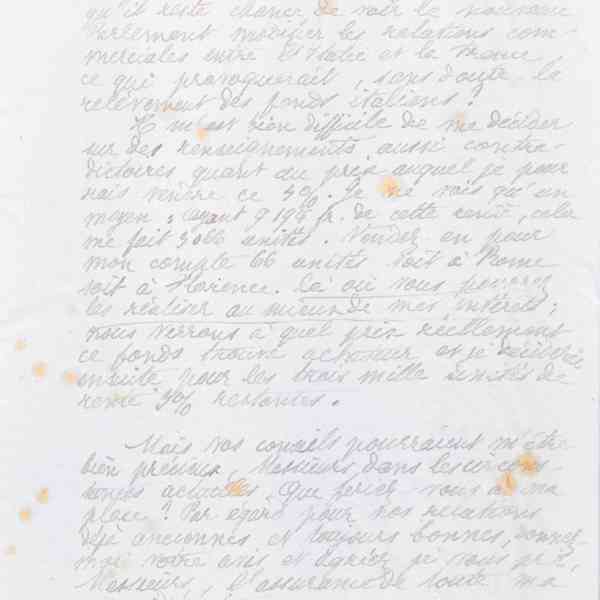 qu'il reste chance de voir le nouveau
Parlement modifier les relations com-
merciales entre l'Italie et la France,
ce qui provoquerait, sans doute, le
relèvement des fonds italiens?
Il m'est bien difficile de me décider
sur des renseignements aussi contra-
dictoires quant au prix auquel je pour
rais vendre ce 3%. Je ne vois qu'un
moyen : ayant 9199 fr. de cette rente, cela
me fait 3066 unités. Vendez en pour
mon compte 66 unités soit à Rome
soit à Florence. Là où vous pourrez
les réaliser au mieux de mes intérêts;
nous verrons à quel prix réellement
ce fonds trouve acheteur et je déciderai
ensuite pour les trois mille unités de
rente 3% restantes.
Mais vos conseils pourraient m'être
bien précieux, Messieurs dans les circons-
tances actuelles. Que feriez-vous à ma
place? Par égard pour nos relations
déjà anciennes et toujours bonnes, donnez
moi votre avis et agréez je vous prie,
Messieurs, l'assurance de toute ma